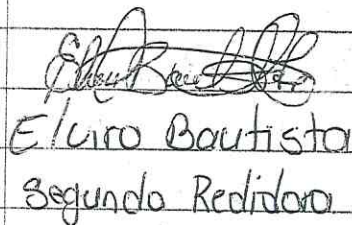 Elviro Bautista
Segundo Redidora